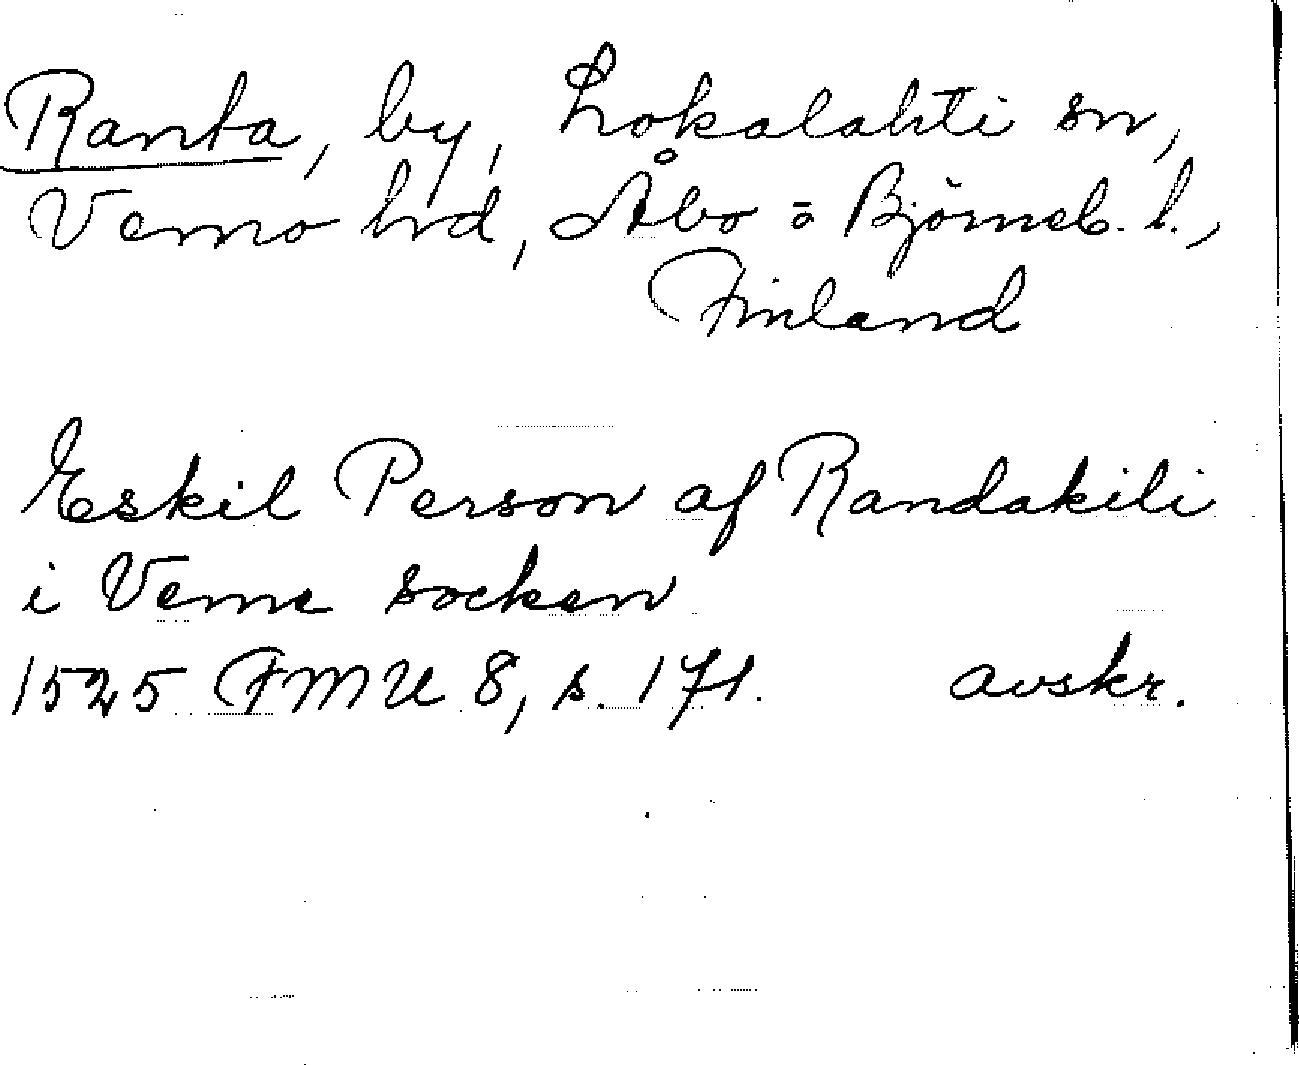 Ranta, by, Lokalahti sn,
Vemo hd, Åbo o Björneb. l.,
Finland
Eskil Person af Randakili
i Veme socken
1525 FMU 8, s. 171. avskr.